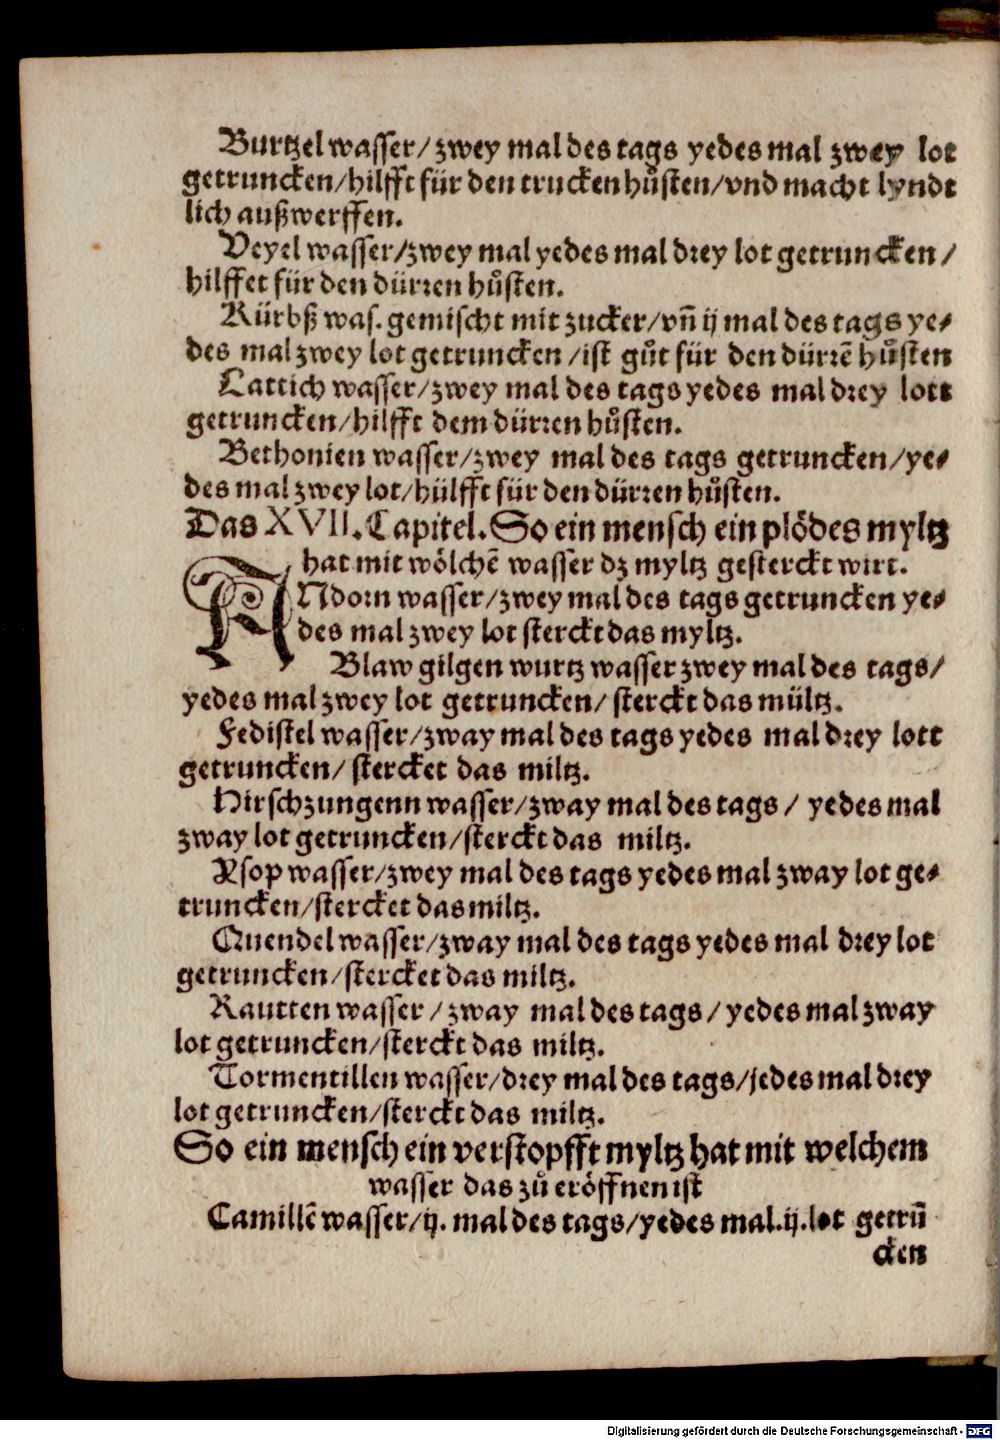 Burtzel wasser/zwey mal des tags yedes mal zwey lot
getruncken/hilfft für den trucken hůsten/vnd macht lyndt
lich außwerffen.
Veyel wasser/zwey mal yedes mal drey lot getruncken/
hilffet für den dürren hůsten.
Kürbß was. gemischt mit zucker/vñ ij mal des tags ye⸗
des mal zwey lot getruncken/ist gůt für den dürrē hůsten
Lattich wasser/zwey mal des tags yedes mal drey lott
getruncken/hilfft dem dürren hůsten.
Bethonien wasser/zwey mal des tags getruncken/ye⸗
des mal zwey lot/hülfft für den dürren hůsten.
Das XVII. Capitel. So ein mensch ein plödes myltz
hat mit wölchē wasser dz myltz gesterckt wirt.
ANdorn wasser/zwey mal des tags getruncken ye⸗
des mal zwey lot sterckt das myltz.
Blaw gilgen wurtz wasser zwey mal des tags/
yedes mal zwey lot getruncken/ sterckt das mültz.
Fedistel wasser/zway mal des tags yedes mal drey lott
getruncken/ stercket das miltz.
Hirschzungenn wasser/zway mal des tags/ yedes mal
zway lot getruncken/sterckt das miltz.
Ysop wasser/zwey mal des tags yedes mal zway lot ge⸗
truncken/stercket das miltz.
Quendel wasser/zway mal des tags yedes mal drey lot
getruncken/stercket das miltz.
Rautten wasser/zway mal des tags/yedes mal zway
lot getruncken/sterckt das miltz.
Tormentillen wasser/drey mal des tags/jedes mal drey
lot getruncken/sterckt das miltz.
So ein mensch ein verstopfft myltz hat mit welchem
wasser das zů eröffnen ist
Camillē wasser/ij. mal des tags/yedes mal.ij.lot getrū
cken
Digitalisierung gefördert durch die Deutsche Forschungsgemeinschaft - DFG